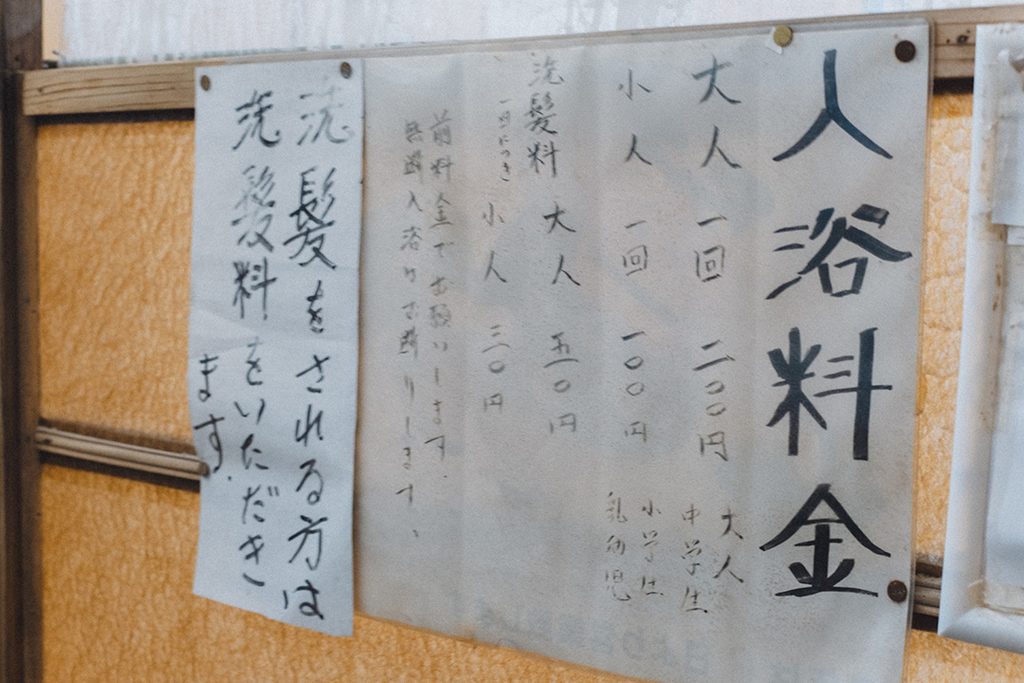 入浴料金
大人 一回 二〇〇円 大人
中学生
小人 一回 一〇〇円 小学生
乳幼児
洗髪料 大人 五〇円
一回につき 小人 三〇円
前料金でお願いします。
無断入浴はお断りします。
洗髪をされる方は
洗髪料をいただき
ます。